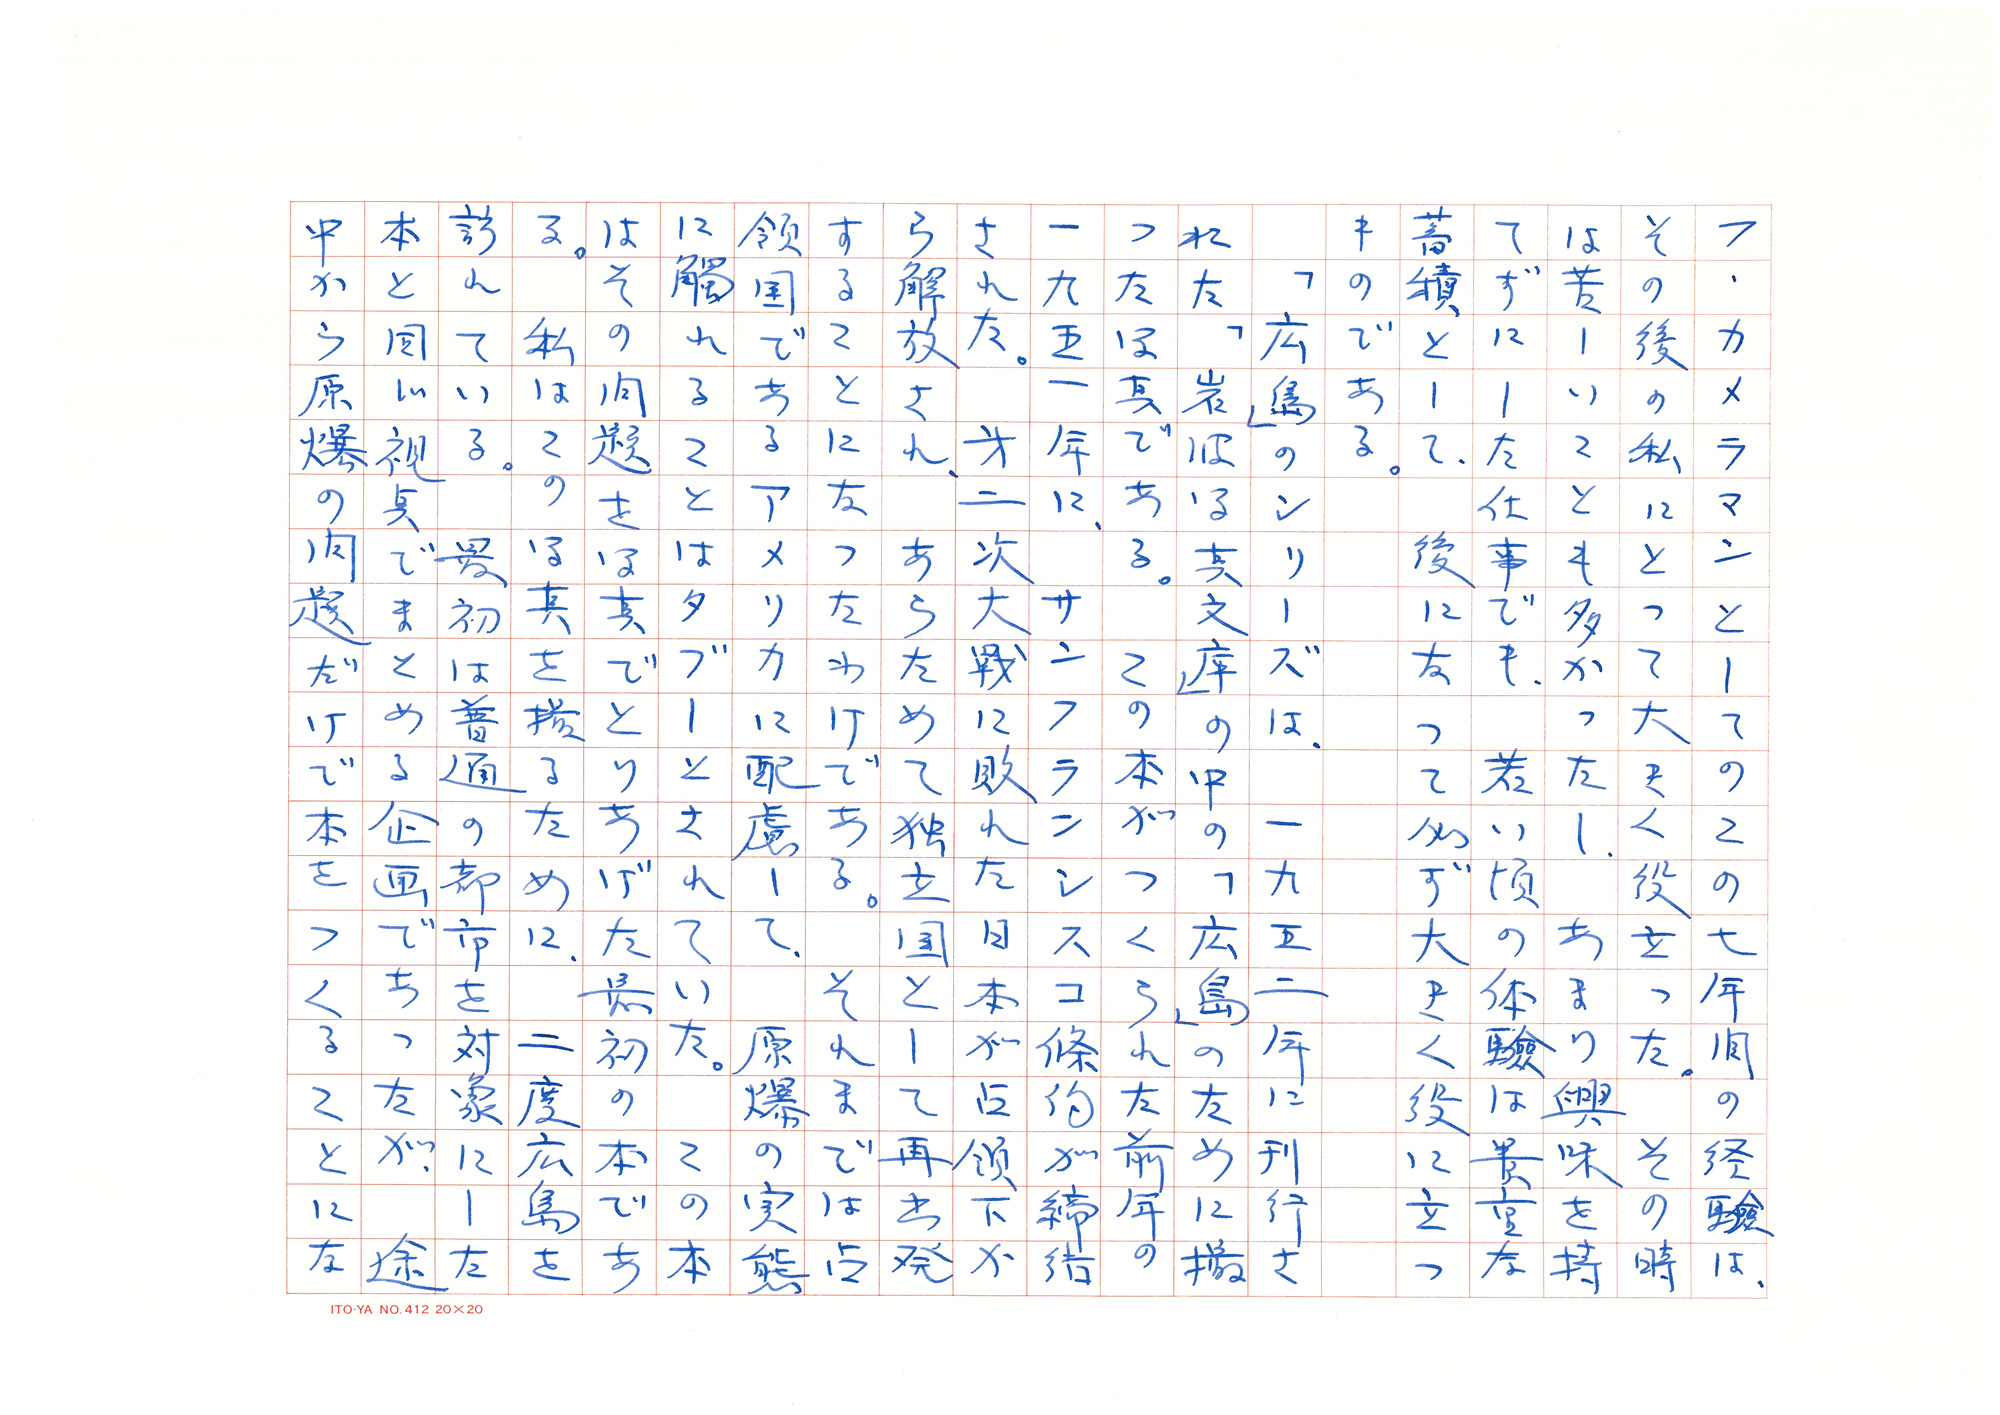 フ・カメラマンとしてのこの七年間の経験は、
その後の私にとって大きく役立った。その時
は苦しいことも多かったし、あまり興味を持
てずにした仕事でも、若い頃の体験は貴重な
蓄積として、後になって必ず大きく役に立つ
ものである。
「広島」のシリーズは、一九五二年に刊行さ
れた「岩波写真文庫」の中の「広島」のために撮
った写真である。この本がつくられた前年の
一九五一年に、サンフランシスコ條約が締結
された。第二次大戦に敗れた日本が占領下か
ら解放され、あらためて独立国として再出発
することになったわけである。それまでは占
領国であるアメリカに配慮して、原爆の実態
に觸れることはタブーとされていた。この本
はその問題を写真でとりあげた最初の本であ
る。私はこの写真を撮るために、二度広島を
訪れている。最初は普通の都市を対象にした
本と同じ視点でまとめる企画であったが、途
中から原爆の問題だけで本をつくることにな
ITO-YA NO.412 20×20